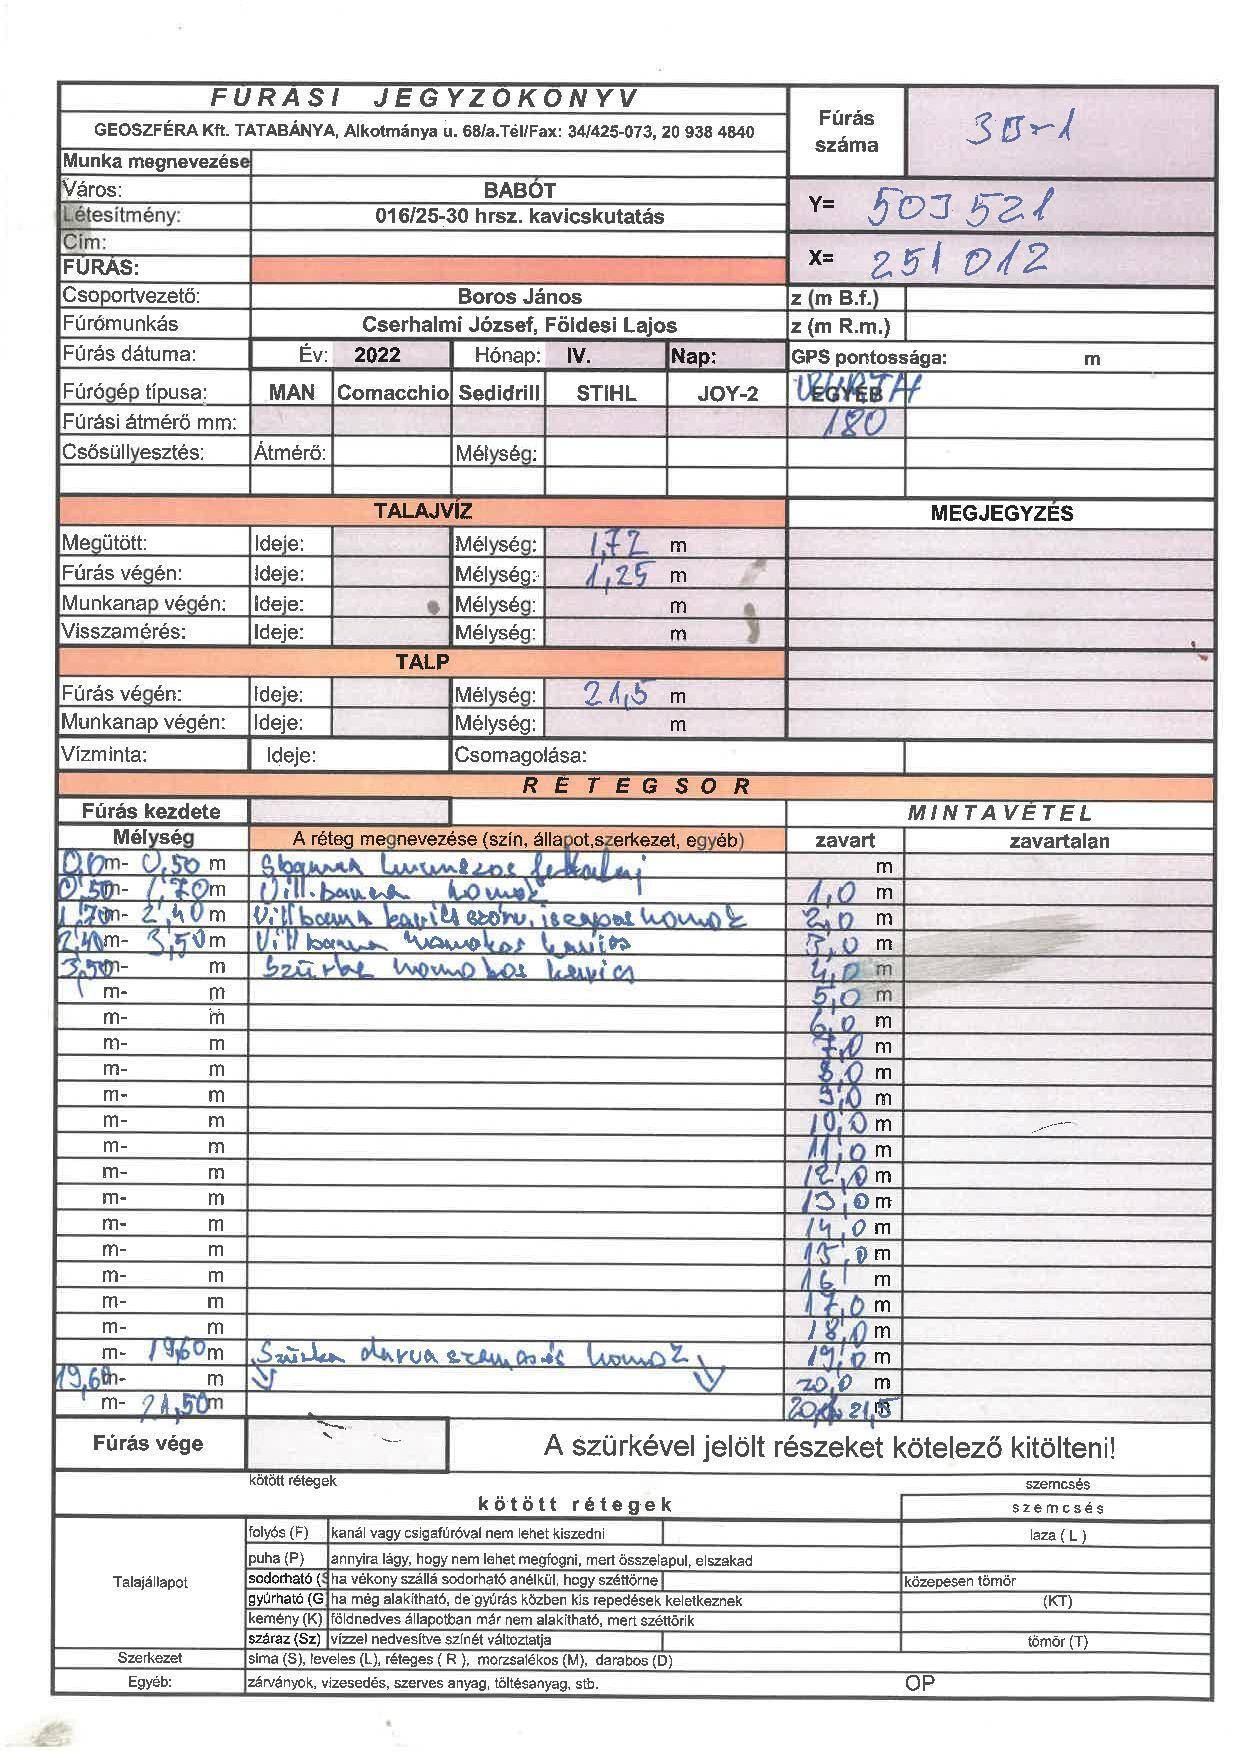 FÚRÁSI JEGYZŐKÖNYV
GEOSZFÉRA Kft. TATABÁNYA, Alkotmánya u. 68/a.Tél/Fax: 34/425-073, 20 938 4840
Fúrás száma 30-1
Munka megnevezése
Város: BABÓT
Y= 503 521
Létesítmény: 016/25-30 hrsz. kavicskutatás
Cím:
X= 251 012
FÚRÁS:
Csoportvezető: Boros János z (m B.f.)
Fúrómunkás Cserhalmi József, Földesi Lajos z (m R.m.)
Fúrás dátuma: Év: 2022 Hónap: IV. Nap: GPS pontossága: m
Fúrógép típusa: MAN Comacchio Sedidrill STIHL JOY-2 EGYÉB
Fúrási átmérő mm: 180
Csősüllyesztés: Átmérő: Mélység:
TALAJVÍZ MEGJEGYZÉS
Megütött: Ideje: Mélység: 1,72 m
Fúrás végén: Ideje: Mélység: 1,25 m
Munkanap végén: Ideje: Mélység: m
Visszamérés: Ideje: Mélység: m
TALP
Fúrás végén: Ideje: Mélység: 21,5 m
Munkanap végén: Ideje: Mélység: m
Vízminta: Ideje: Csomagolása:
RÉTEGSOR
Fúrás kezdete MINTAVÉTEL
Mélység A réteg megnevezése (szín, állapot,szerkezet, egyéb) zavart zavartalan
0,0m- 0,50 m humuszos m
0,50m- 1,70m Vill.barna homok 1,0 m
1,70m- 2,40m Vill barna kavics szórv. iszapos homok 2,0 m
2,40m- 3,50m Vill barna homokos kavics 3,0 m
3,50m- m Szürke homokos kavics 4,0 m
m- m 5,0 m
m- m 6,0 m
m- m 7,0 m
m- m 8,0 m
m- m 9,0 m
m- m 10,0 m
m- m 11,0 m
m- m 12,0 m
m- m 13,0 m
m- m 14,0 m
m- m 15,0 m
m- m 16, m
m- m 17,0 m
m- m 18,0 m
m- 19,60m Szürke durva szemcsés homok 19,0 m
19,60m- m 20,0 m
m- 21,50m 21,5 m
Fúrás vége A szürkével jelölt részeket kötelező kitölteni!
kötött rétegek szemcsés
kötött rétegek szemcsés
Talajállapot
folyós (F) kanál vagy csigafúróval nem lehet kiszedni laza ( L )
puha (P) annyira lágy, hogy nem lehet megfogni, mert összelapul, elszakad
sodorható (S ha vékony szállá sodorható anélkül, hogy széttörne közepesen tömör
gyúrható (G ha még alakítható, de gyúrás közben kis repedések keletkeznek (KT)
kemény (K) földnedves állapotban már nem alakítható, mert széttörik
száraz (Sz) vízzel nedvesítve színét változtatja tömör (T)
Szerkezet sima (S), leveles (L), réteges ( R ), morzsalékos (M), darabos (D)
Egyéb: zárványok, vizesedés, szerves anyag, töltésanyag, stb. OP